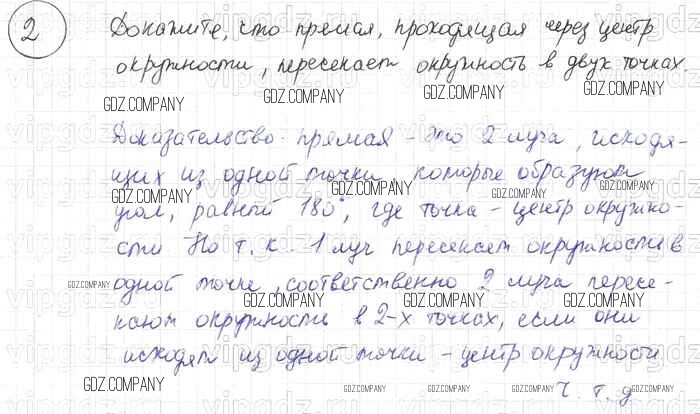 2 Докажите, что прямая, проходящая через центр
окружности, пересекает окружность в двух точках
GDZ.COMPANY GDZ.COMPANY GDZ.COMPANY
Доказательство. прямая - это 2 луча, исходя-
щих из одной точки, которые образуют
GDZ.COMPANY GDZ.COMPANY GDZ.COMPANY GDZ.COMPANY
угол, равный 180°, где точка - центр окружно-
сти Но т. к 1 луч пересекает окружности в
одной точке, соответственно 2 луча пересе-
GDZ.COMPANY GDZ.COMPANY GDZ.COMPANY GDZ.COMPANY
кают окружность в 2-х точках, если они
исходят из одной точки - центр окружности
GDZ.COMPANY GDZ.COMPANY GDZ.COMPANY GDZ.COMPANY
ч. т. д